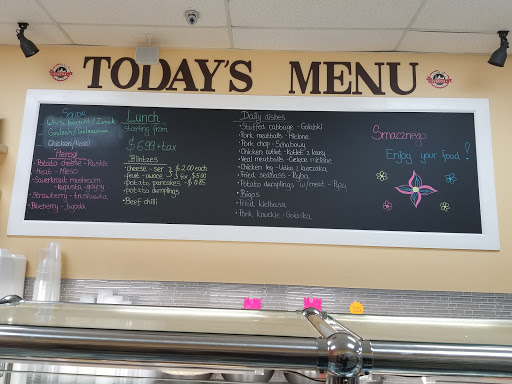 TODAY'S MENU
Soups
White borscht / Zurek
Goulash / Gulaszowa
Chicken / Rosol
Pierogi
Potato cheese - Ruskie
Meat - Mieso
Sauerkraut mushroom
- kapusta - grzyby
Strawberry - truskawka
Blueberry - Jagoda
Lunch
starting from
$6.99 + tax
Blintzes
cheese - ser
$2.00 each
fruit - owoce
3 for $5.00
potato pancakes - $0.85
potato dumplings
Beef chilli
Daily dishes
- Stuffed cabbage - Golabki
- Pork meatballs - Mielone
- Pork chop - Schabowy
- Chicken cutlet - Kotlet z kury
- Veal meatballs - Cielęce mielone
- Chicken leg - Udka z kurczaka
- Fried seabass - Ryba
- Potato dumplings w/meat - Pyzy
- Bigos
- Fried kielbasa
- Pork knuckle - Golonka
Smacznego
Enjoy your food!